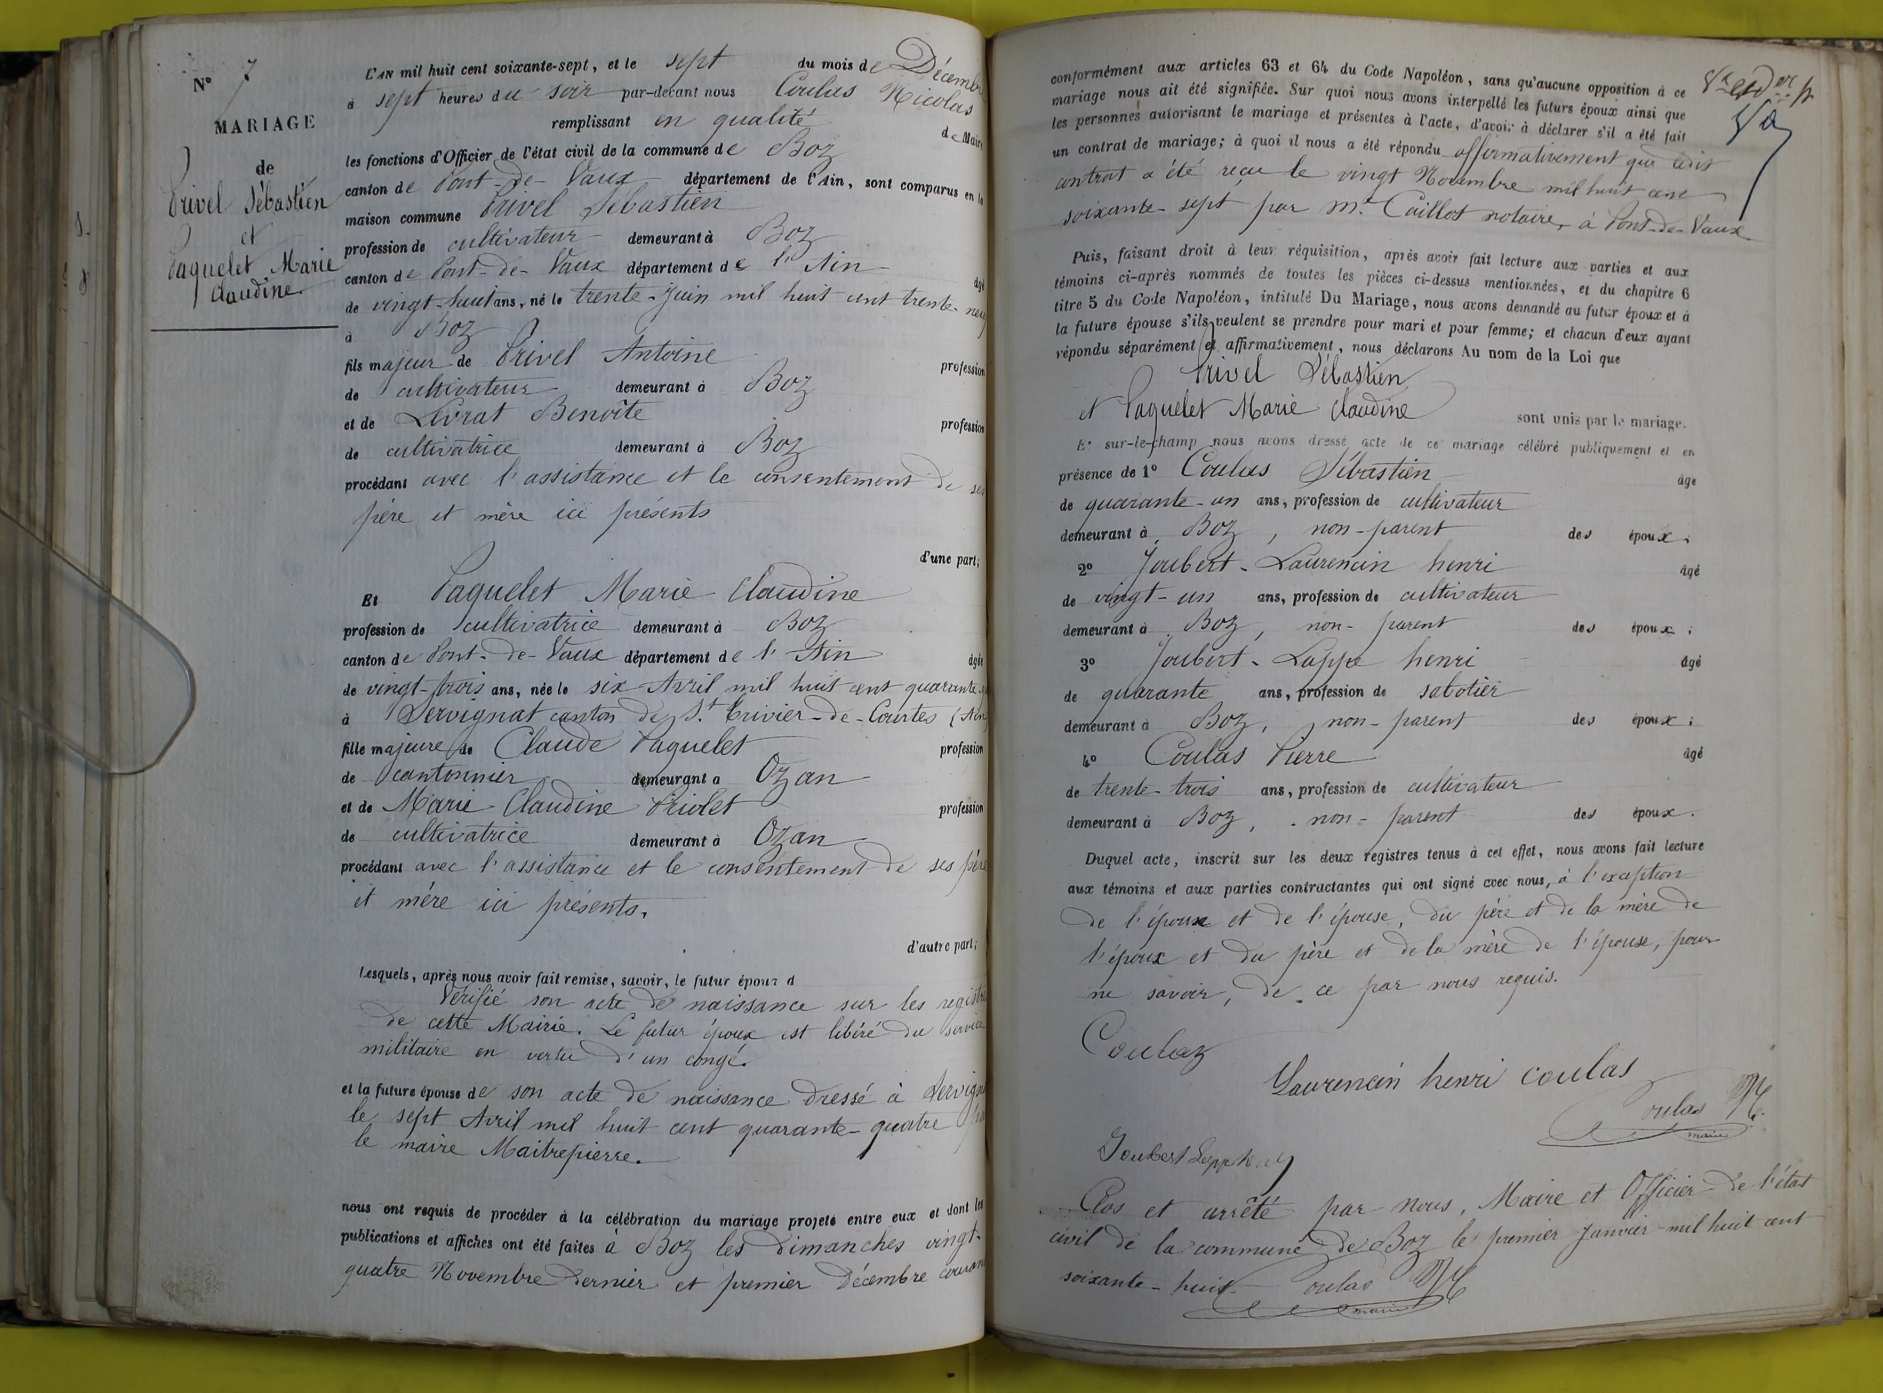 N° 7
MARIAGE
de
Privel Sébastien
et
Paquelet Marie
Claudine.
L'AN mil huit cent soixante-sept, et le sept du mois de Décembre
à sept heures du soir par-devant nous Coulas Nicolas
remplissant en qualité de Maire
les fonctions d'Officier de l'état civil de la commune de Boz
canton de Pont-de-Vaux département de l'Ain, sont comparus en la
maison commune Privel Sébastien
profession de cultivateur demeurant à Boz
canton de Pont-de-Vaux département de l'Ain âgé
de vingt-huit ans, né le trente Juin mil huit cent trente-neuf
à Boz
fils majeur de Privel Antoine profession
de cultivateur demeurant à Boz
et de Livrat Benoîte profession
de cultivatrice demeurant à Boz
procédant avec l'assistance et le consentement de ses
père et mère ici présents
d'une part;
Et Paquelet Marie Claudine
profession de cultivatrice demeurant à Boz
canton de Pont-de-Vaux département de l'Ain âgée
de vingt-trois ans, née le six Avril mil huit cent quarante
à Servignat canton de St. Trivier-de-Courtes (Ain
fille majeure de Claude Paquelet profession
de cantonnier demeurant à Ozan
et de Marie Claudine Priolet profession
de cultivatrice demeurant à Ozan
procédant avec l'assistance et le consentement de ses père
et mère ici présents.
d'autre part;
Lesquels, après nous avoir fait remise, savoir, le futur époux d
Vérifié son acte de naissance sur les registres
de cette Mairie. Le futur époux est libéré du service
militaire en vertu d'un congé.
et la future épouse de son acte de naissance dressé à Servignat
le sept Avril mil huit cent quarante-quatre par
le maire Maitrepierre.
nous ont requis de procéder à la célébration du mariage projeté entre eux et dont les
publications et affiches ont été faites à Boz les dimanches vingt-
quatre Novembre dernier et premier Décembre courant
conformément aux articles 63 et 64 du Code Napoléon, sans qu'aucune opposition à ce
mariage nous ait été signifiée. Sur quoi nous avons interpellé les futurs époux ainsi que
les personnes autorisant le mariage et présentes à l'acte, d'avoir à déclarer s'il a été fait
un contrat de mariage; à quoi il nous a été répondu affirmativement que ledit
contrat a été reçu le vingt Novembre mil huit cent
soixante-sept par Mt. Caillot notaire, à Pont-de-Vaux
Puis, faisant droit à leur réquisition, après avoir fait lecture aux parties et aux
témoins ci-après nommés de toutes les pièces ci-dessus mentionnées, et du chapitre 6
titre 5 du Code Napoléon, intitulé Du Mariage, nous avons demandé au futur époux et à
la future épouse s'ils veulent se prendre pour mari et pour femme; et chacun d'eux ayant
répondu séparément et affirmativement, nous déclarons Au nom de la Loi que
Privel Sébastien
et Paquelet Marie Claudine sont unis par le mariage.
Et sur-le-champ nous avons dressé acte de ce mariage célébré publiquement et en
présence de 1° Coulas Sébastien âgé
de quarante-un ans, profession de cultivateur
demeurant à Boz, non-parent des époux;
2° Joubert-Laurencin henri âgé
de vingt-un ans, profession de cultivateur
demeurant à Boz, non-parent des époux;
3° Joubert-Lappe henri âgé
de quarante ans, profession de sabotier
demeurant à Boz, non-parent des époux;
4° Coulas Pierre âgé
de trente-trois ans, profession de cultivateur
demeurant à Boz, non-parent des époux.
Duquel acte, inscrit sur les deux registres tenus à cet effet, nous avons fait lecture
aux témoins et aux parties contractantes qui ont signé avec nous, à l'exception
de l'époux et de l'épouse, du père et de la mère de
l'époux et du père et de la mère de l'épouse, pour
ne savoir, de ce par nous requis.
Coulaz
Laurencin henri coulas
Coulas N
maire
Joubert Lappe
Clos et arrêté par nous, Maire et Officier de l'état
civil de la commune de Boz le premier Janvier mil huit cent
soixante-huit Coulas N
maire